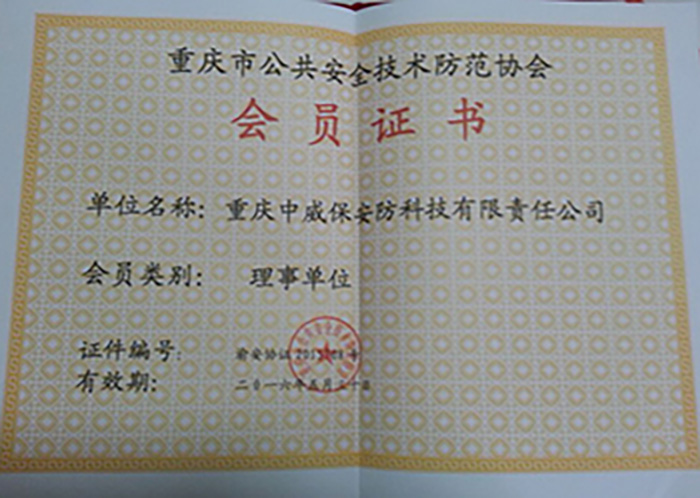 重庆市公共安全技术防范协会
会员证书
单位名称: 重庆中威保安防科技有限责任公司
会员类别: 理事单位
证件编号: 渝安协证
有效期: 二〇一六年五月三十日